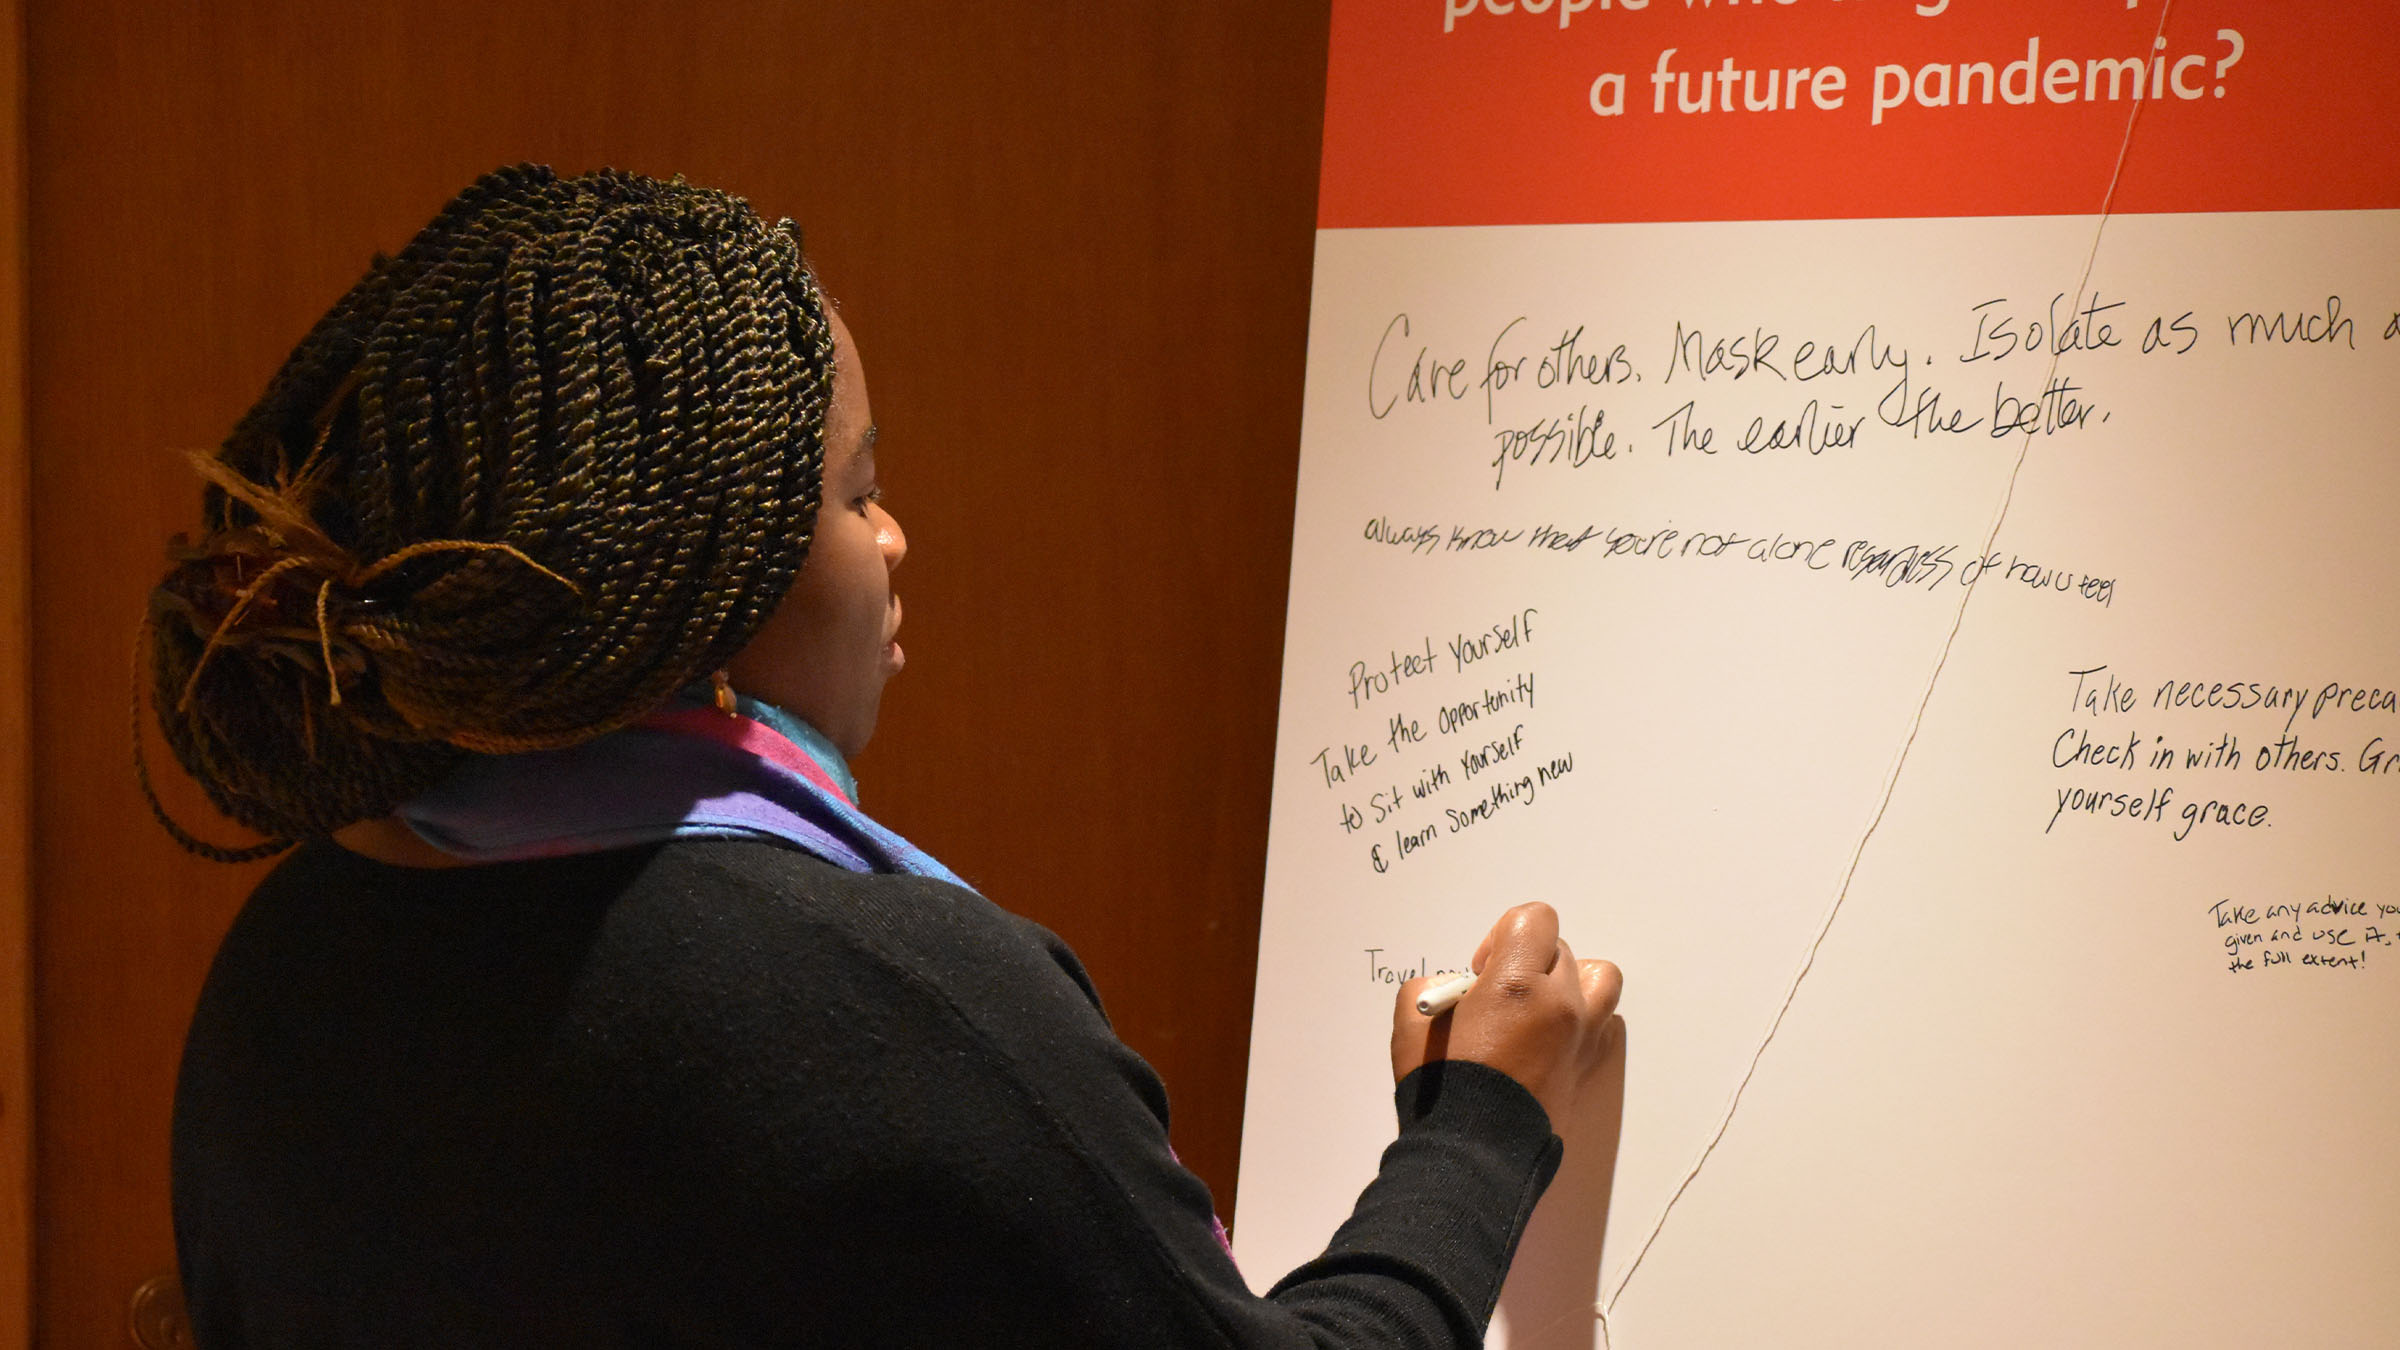 people who
a future pandemic?
Care for others. Mask early. Isolate as much
possible. The earlier the better.
always know that you're not alone regardless of how u feel
Protect Yourself
Take the Opportunity
to Sit with Yourself
& learn Something new
Take necessary
Check in with others.
yourself grace.
Travel
Take any advice
given and use it,
the full extent!